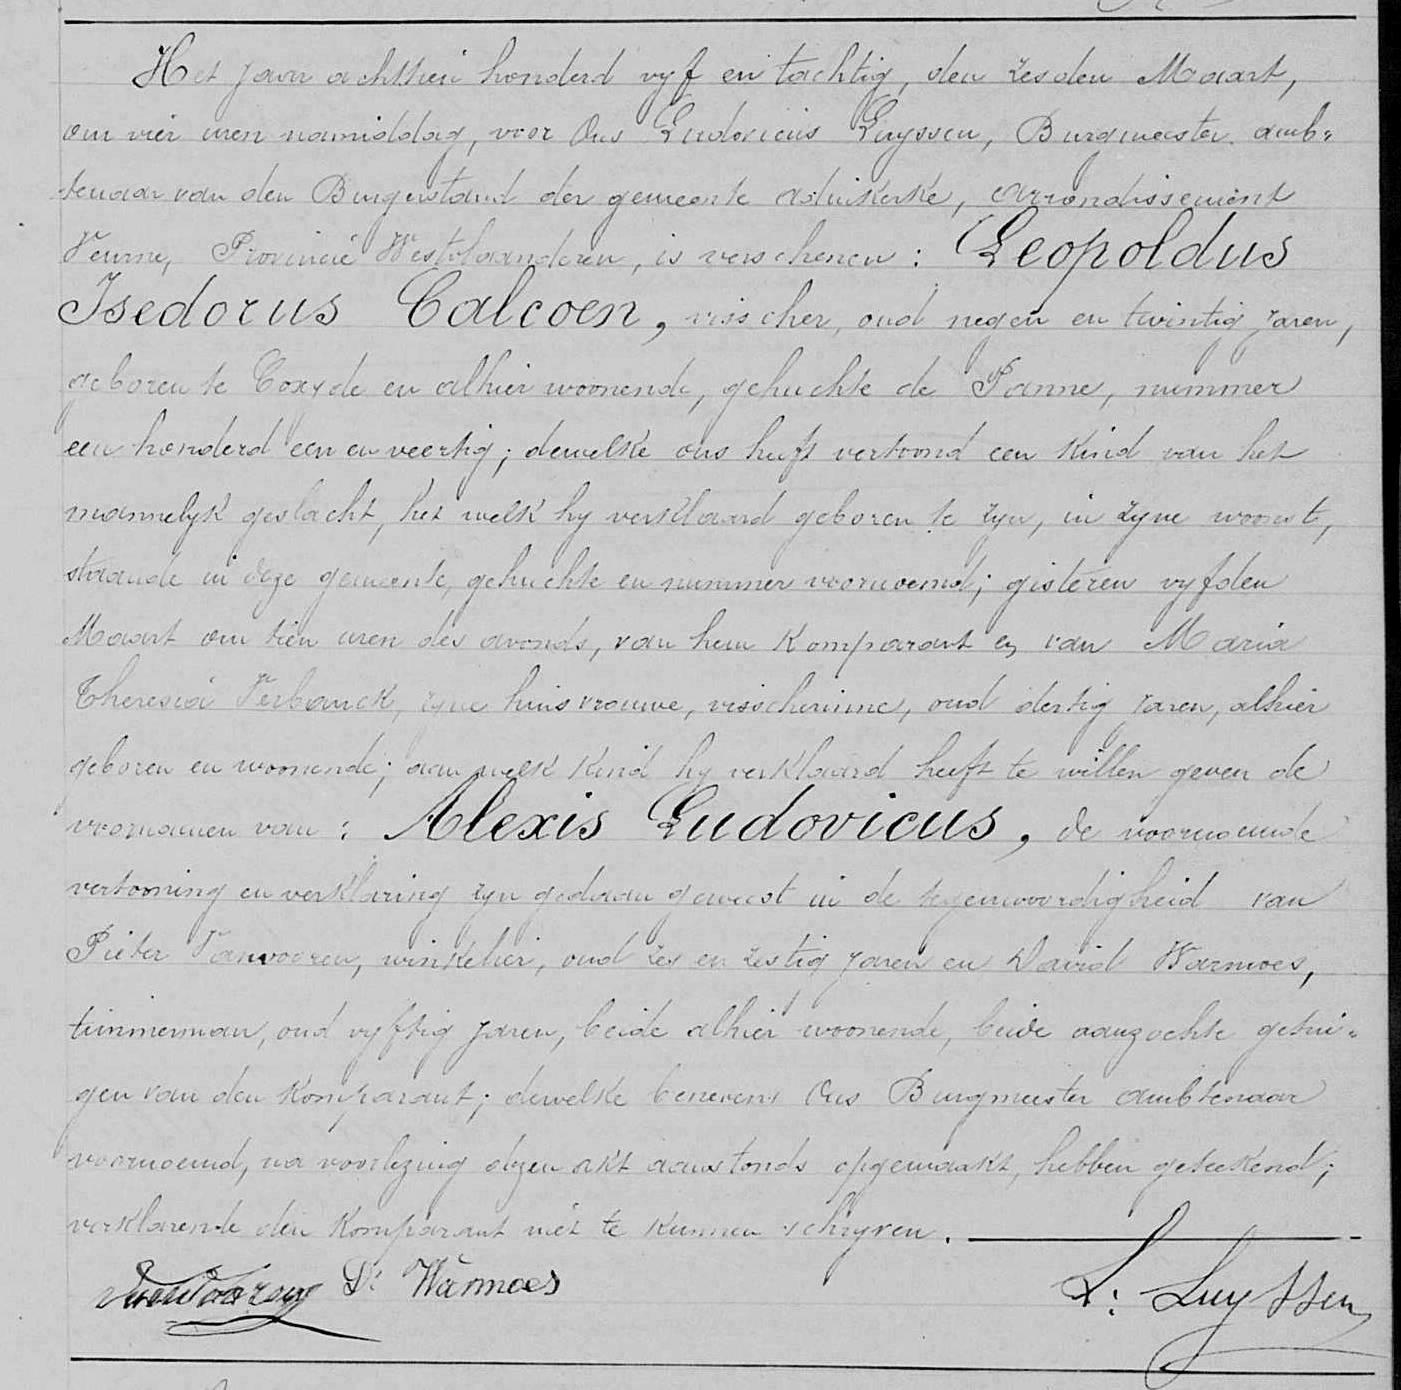 Het jaar achttien honderd vyf en tachtig, den zesden Maart,
om vier uren namiddag, voor Ons Ludovicus Luyssen, Burgmeester amb=
tenaar van den Burgerstand der gemeente Adinkerke, arrondissement
Veurne, Provincie Westvlaanderen, is verschenen : Leopoldus
Isedorus Calcoen, visscher, oud negen en twintig jaren,
geboren te Coxyde en alhier woonende, gehuchte de Panne, nummer
een honderd een en veertig; dewelke ons heeft vertoond een kind van het
mannelyk geslacht, het welk hy verklaard geboren te zyn, in zyne woonst,
staande in deze gemeente, gehuchte en nummer voornoemd; gisteren vyfden
Maart om tien uren des avonds, van hem Komparant en van Maria
Theresia Verbanck, zyne huisvrouwe, visscherinne, oud dertig jaren, alhier
geboren en woonende; aan welk kind hy verklaard heeft te willen geven de
voornamen van : Alexis Ludovicus, de voornoemde
vertooning en verklaring zyn gedaan geweest in de tegenwoordigheid van
Pieter Vanvooren, winkelier, oud zes en zestig jaren en David Warmoes,
timmerman, oud vyftig jaren, beide alhier woonende, beide aanzochte getui=
gen van den Komparant; dewelke benevens Ons Burgmeester ambtenaar
voornoemd, na voorlezing dezen akt aanstonds opgemaakt, hebben geteekend;
verklarende den Komparant niet te kunnen schryven.
VanVooren D. Warmoes L. Luyssen